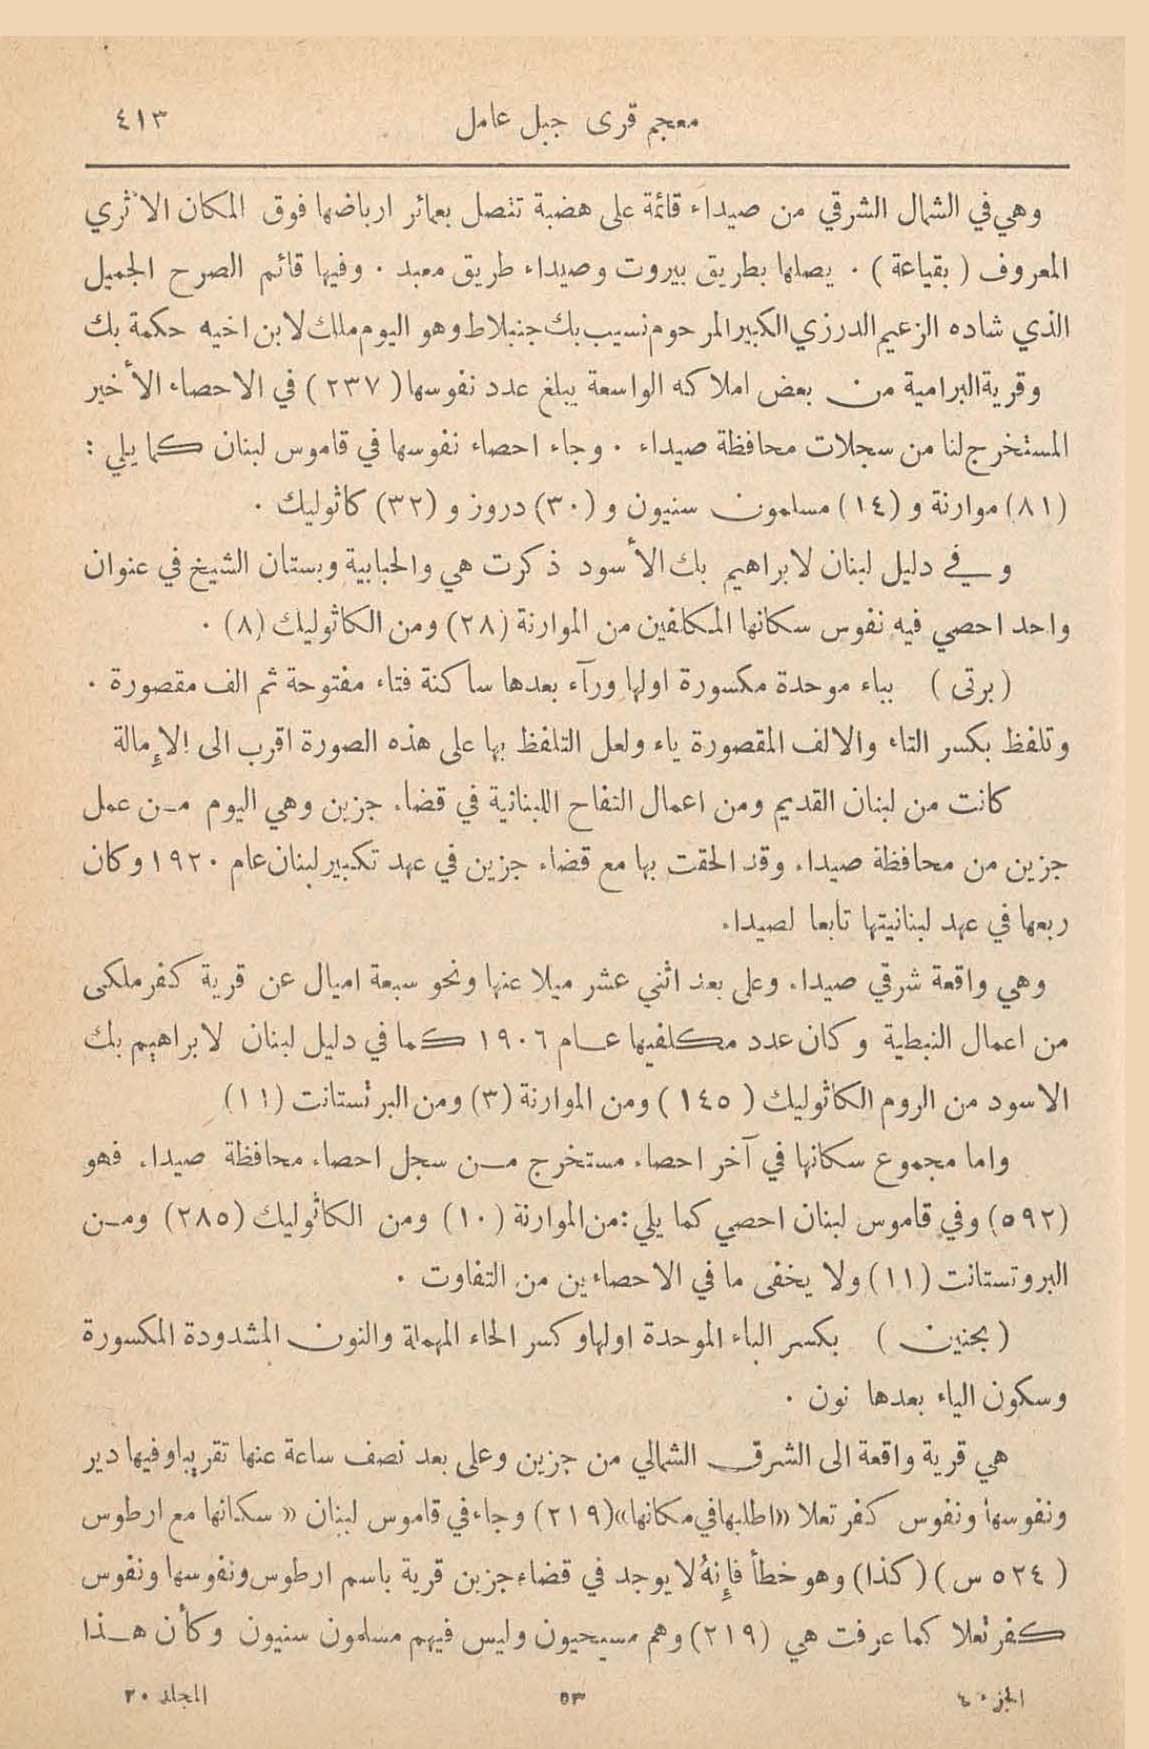 معجم قرى جبل عامل ٤١٣
وهي في الشمال الشرقي من صيداء قائمة على هضبة تتصل بعمائر ارباضها فوق المكان الاثري
المعروف ( بقياعة ) . يصلها بطريق بيروت وصيداء طريق معبد . وفيها قائم الصرح الجميل
الذي شاده الزعيم الدرزي الكبير المرحوم نسيب بك جنبلاط وهو اليوم ملك لابن اخيه حكمة بك
وقرية البرامية من بعض املاكه الواسعة يبلغ عدد نفوسها ( ٢٣٧ ) في الاحصاء الأخير
المستخرج لنا من سجلات محافظة صيداء . وجاء احصاء نفوسها في قاموس لبنان كما يلي :
(٨١) موارنة و (١٤) مسلمون سنيون و (٣٠) دروز و (٣٢) كاثوليك .
وفي دليل لبنان لابراهيم بك الأسود ذكرت هي والحبابية وبستان الشيخ في عنوان
واحد احصي فيه نفوس سكانها المكلفين من الموارنة (٢٨) ومن الكاثوليك (٨) .
( برتى ) بباء موحدة مكسورة اولها ورآء بعدها ساكنة فتاء مفتوحة ثم الف مقصورة .
وتلفظ بكسر التاء والالف المقصورة ياء ولعل التلفظ بها على هذه الصورة اقرب الى الإمالة
كانت من لبنان القديم ومن اعمال التفاح اللبنانية في قضاء جزين وهي اليوم من عمل
جزين من محافظة صيداء وقد الحقت بها مع قضاء جزين في عهد تكبير لبنان عام ١٩٢٠ وكان
ربعها في عهد لبنانيتها تابعا لصيداء
وهي واقعة شرقي صيداء وعلى بعد اثني عشر ميلا عنها ونحو سبعة اميال عن قرية كفرملكى
من اعمال النبطية وكان عدد مكلفيها عام ١٩٠٦ كما في دليل لبنان لابراهيم بك
الاسود من الروم الكاثوليك ( ١٤٥ ) ومن الموارنة (٣) ومن البرتستانت (١١)
واما مجموع سكانها في آخر احصاء مستخرج من سجل احصاء محافظة صيداء فهو
(٥٩٢) وفي قاموس لبنان احصي كما يلي : من الموارنة (١٠) ومن الكاثوليك (٢٨٥) ومن
البروتستانت (١١) ولا يخفى ما في الاحصاءين من التفاوت .
( بحنين ) بكسر الباء الموحدة اولها وكسر الحاء المهملة والنون المشدودة المكسورة
وسكون الياء بعدها نون .
هي قرية واقعة الى الشرق الشمالي من جزين وعلى بعد نصف ساعة عنها تقريبا وفيها دير
ونفوسها ونفوس كفر تعلا «اطلبها في مكانها» (٢١٩) وجاء في قاموس لبنان « سكانها مع ارطوس
( ٥٢٤ س ) ( كذا ) وهو خطأ فإنهُ لا يوجد في قضاء جزين قرية باسم ارطوس ونفوسها ونفوس
كفر تعلا كما عرفت هي (٢١٩) وهم مسيحيون وليس فيهم مسلمون سنيون وكأن هذا
الجزء ٤ ٥٣ المجلد ٢٠